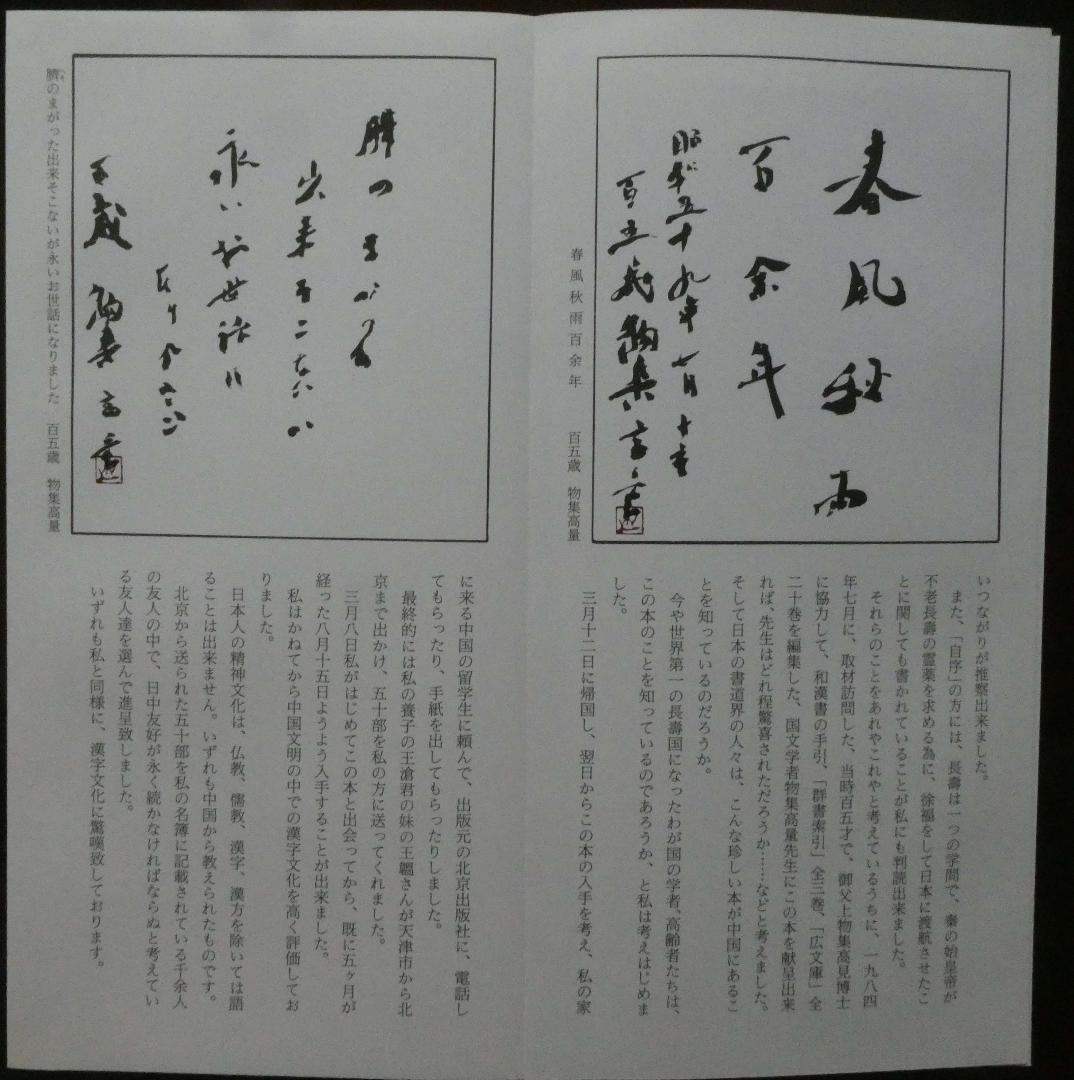 春風秋雨
百余年
昭和五十九年七月十日
百五歳 物集高量
春風秋雨百余年 百五歳 物集高量
いつながりが推察出来ました。
また、「自序」の方には、長壽は一つの学問で、秦の始皇帝が
不老長壽の霊薬を求める為に、徐福をして日本に渡航させたこ
とに関しても書かれていることが私にも判読出来ました。
それらのことをあれやこれやと考えているうちに、一九八四
年七月に、取材訪問した、当時百五才で、御父上物集高見博士
に協力して、和漢書の手引、「群書索引」全三巻、「広文庫」全
二十巻を編集した、国文学者物集高量先生にこの本を献呈出来
れば、先生はどれ程驚喜されただろうか……などと考えました。
そして日本の書道界の人々は、こんな珍しい本が中国にあるこ
とを知っているのだろうか。
今や世界第一の長壽国になったわが国の学者、高齢者たちは、
この本のことを知っているのであろうか、と私は考えはじめま
した。
三月十二日に帰国し、翌日からこの本の入手を考え、私の家
臍のまがつた
出来そこないが
永いお世話に
なりました
百五歳 物集高量
臍のまがった出来そこないが永いお世話になりました 百五歳 物集高量
に来る中国の留学生に頼んで、出版元の北京出版社に、電話し
てもらったり、手紙を出してもらったりしました。
最終的には私の養子の王滄君の妹の王韞さんが天津市から北
京まで出かけ、五十部を私の方に送ってくれました。
三月八日私がはじめてこの本と出会ってから、既に五ヶ月が
経った八月十五日ようよう入手することが出来ました。
私はかねてから中国文明の中での漢字文化を高く評価してお
りました。
日本人の精神文化は、仏教、儒教、漢字、漢方を除いては語
ることは出来ません。いずれも中国から教えられたものです。
北京から送られた五十部を私の名簿に記載されている千余人
の友人の中で、日中友好が永く続かなければならぬと考えてい
る友人達を選んで進呈致しました。
いずれも私と同様に、漢字文化に驚嘆致しております。